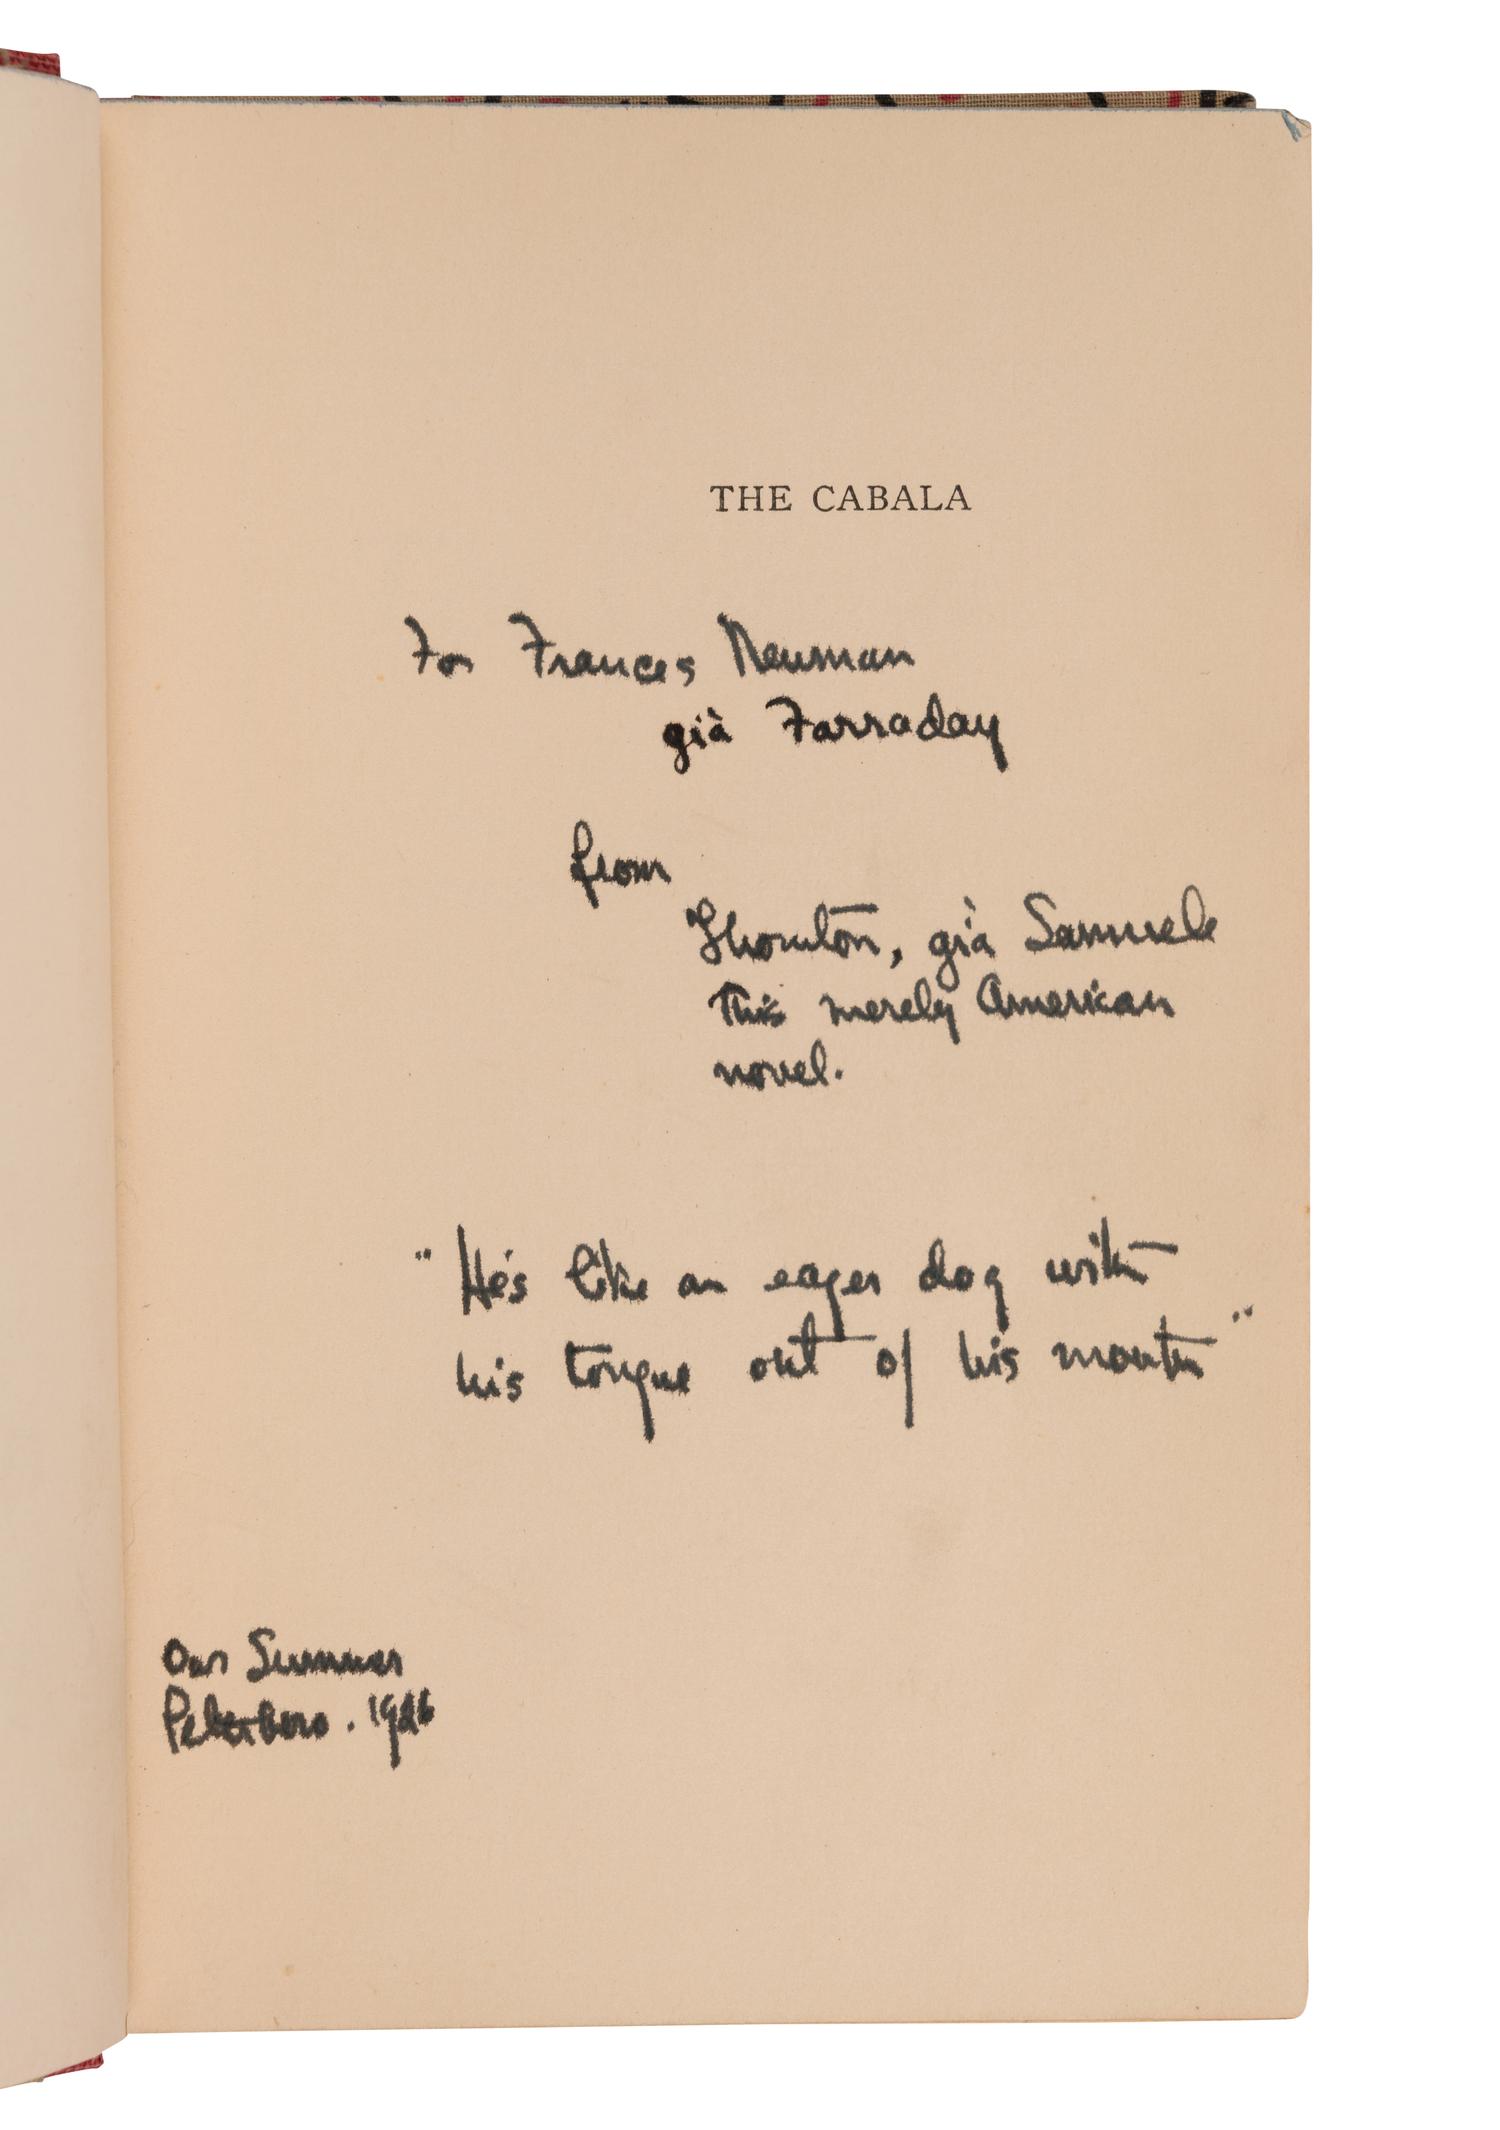 THE CABALA
For Frances Newman
già Farraday
from
Thornton, già Samuele
this merely American
novel.
"He's like an eager dog with
his tongue out of his mouth"
Our Summer
Peterboro. 1926